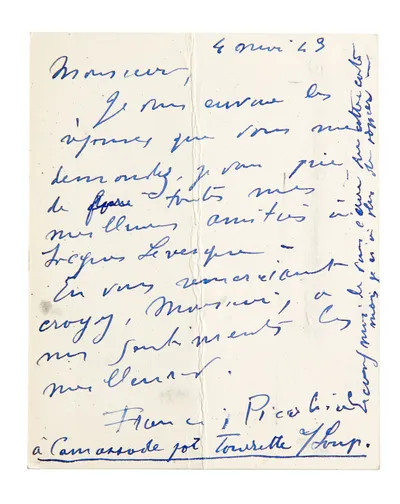 4 mai 49
Monsieur,
Je vous envoie les
réponses que vous me
demandez, je vous prie
de faire toutes mes
meilleures amitiés à
Jacques Levesque –
En vous remerciant
croyez, Monsieur, à
mes sentiments les
meilleurs.
Francis Picabia
à Camassade pot Tourrette s/Loup.
je vous écris sur cette carte
mais je n'ai plus de papier –